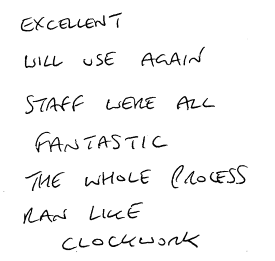 EXCELLENT
WILL USE AGAIN
STAFF WERE ALL
FANTASTIC
THE WHOLE PROCESS
RAN LIKE
CLOCKWORK